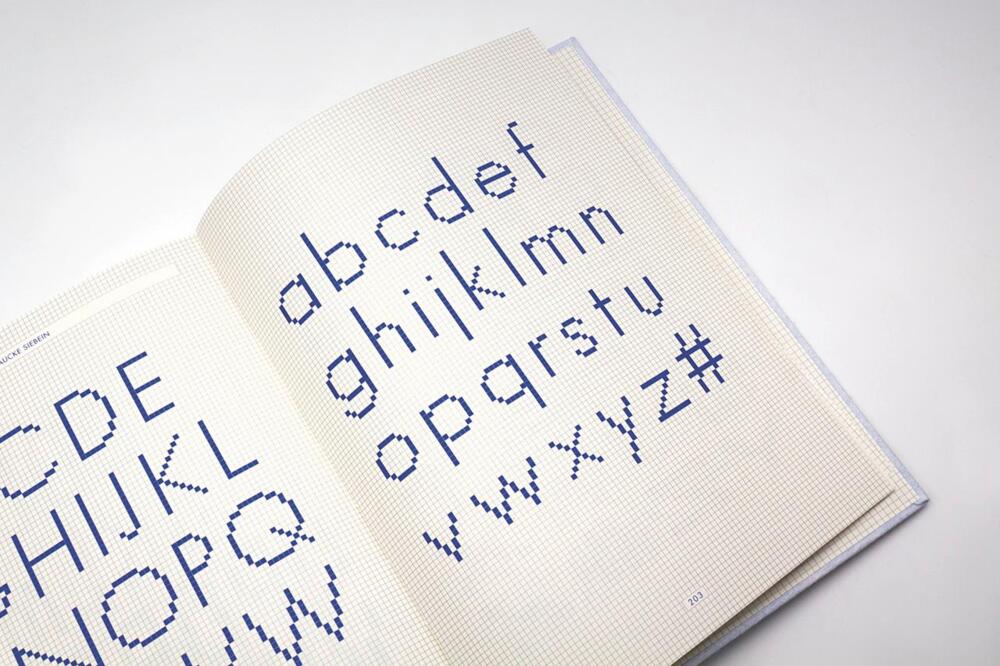 AUCKE SIEBEIN
CDE
HIJKL
NOPQ
VW
abcdef
ghijklmn
opqrstu
vwxyz#
203